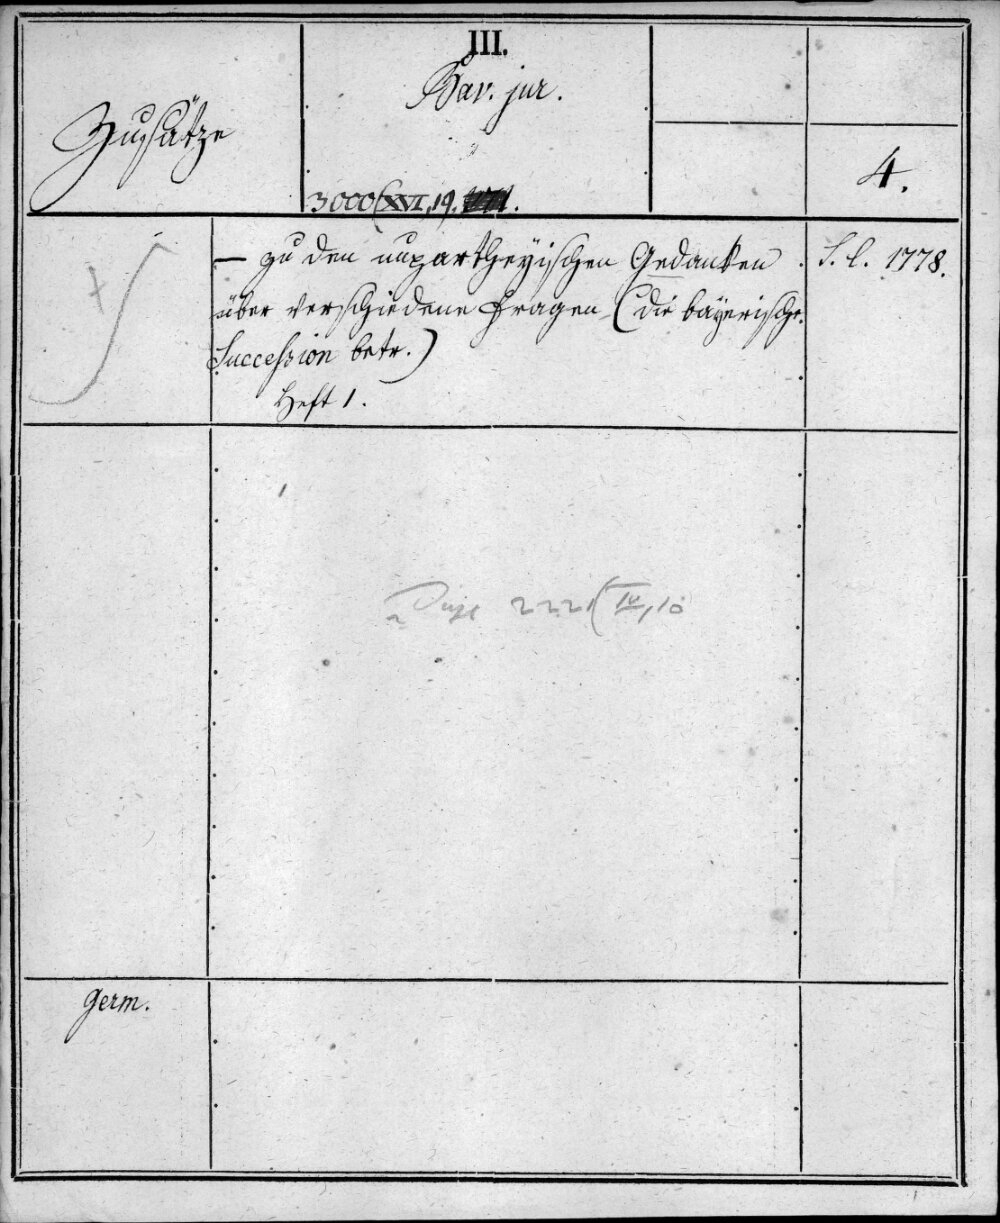 III.
Bav. jur.
Zusätze
4.
3000(XVI,19.
— zu den unpartheyischen Gedanken
S. l. 1778.
über verschiedene Fragen (die bayerische
Succession betr.)
Heft 1.
2221(IV,10
Germ.